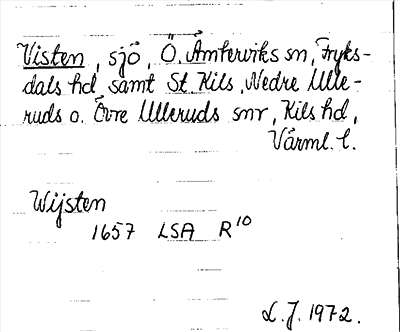 Visten, sjö, Ö. Ämterviks sn, Fryks-
dals hd samt St. Kils, Nedre Ulle-
ruds o. Övre Ulleruds snr, Kils hd,
Värml. l.
Wijsten
1657 LSA R10
L.J. 1972.